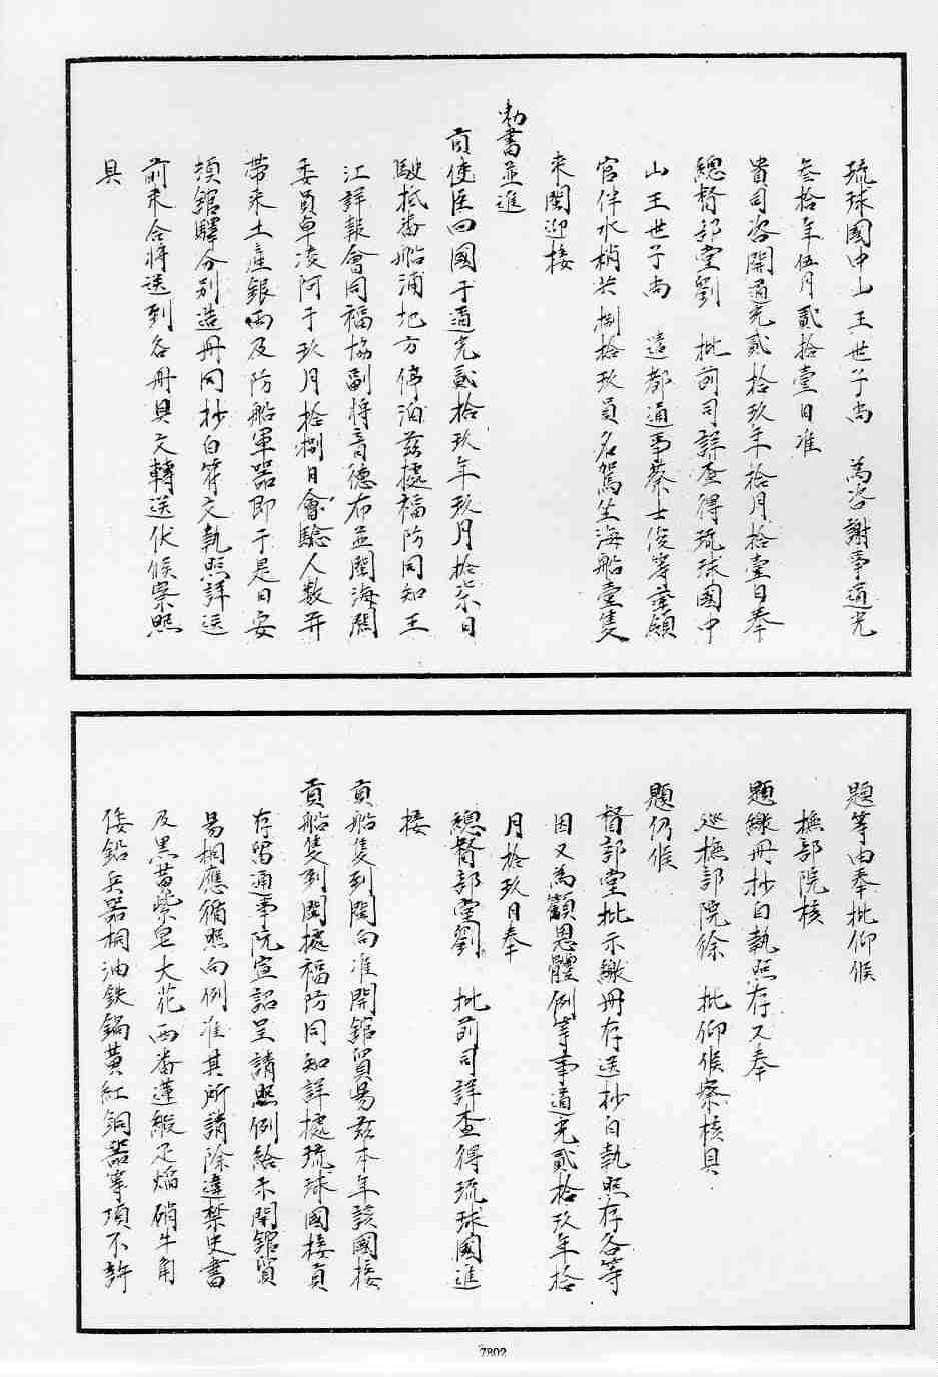 琉球國中山王世子尚　為咨謝事道光
叁拾年伍月貳拾壹日准
貴司咨開道光貳拾玖年拾月拾壹日奉
總督部堂劉　批前司詳查得琉球國中
山王世子尚　遣都通事蔡士俊等率領
官伴水梢共捌拾玖員名駕坐海船壹隻
來閩迎接
勅書並進
貢使臣回國于道光貳拾玖年玖月拾柒日
駛抵番船浦地方停泊茲據福防同知王
江詳報會同福協副將音德布並閩海關
委員卓凌阿于玖月拾捌日會驗人數并
帶來土產銀兩及防船軍器即于是日安
頓館驛分別造冊同抄白符文執照詳送
前來合將送到各冊具文轉送伏候察照
具
題等由奉批仰候
撫部院核
題繳冊抄白執照存又奉
巡撫部院徐　批仰候察核具
題仍候
督部堂批示繳冊存送抄白執照存各等
因又為籲恩體例等事道光貳拾玖年拾
月拾玖日奉
總督部堂劉　批前司詳查得琉球國進
接
貢船隻到閩向准開館貿易茲本年該國接
貢船隻到閩據福防同知詳據琉球國接貢
存留通事阮宣詔呈請照例給示開館貿
易相應循照向例准其所請除違禁史書
及黑黃紫皂大花西番蓮緞疋焰硝牛角
倭鉛兵器桐油鉄鍋黃紅銅器等項不許
7802